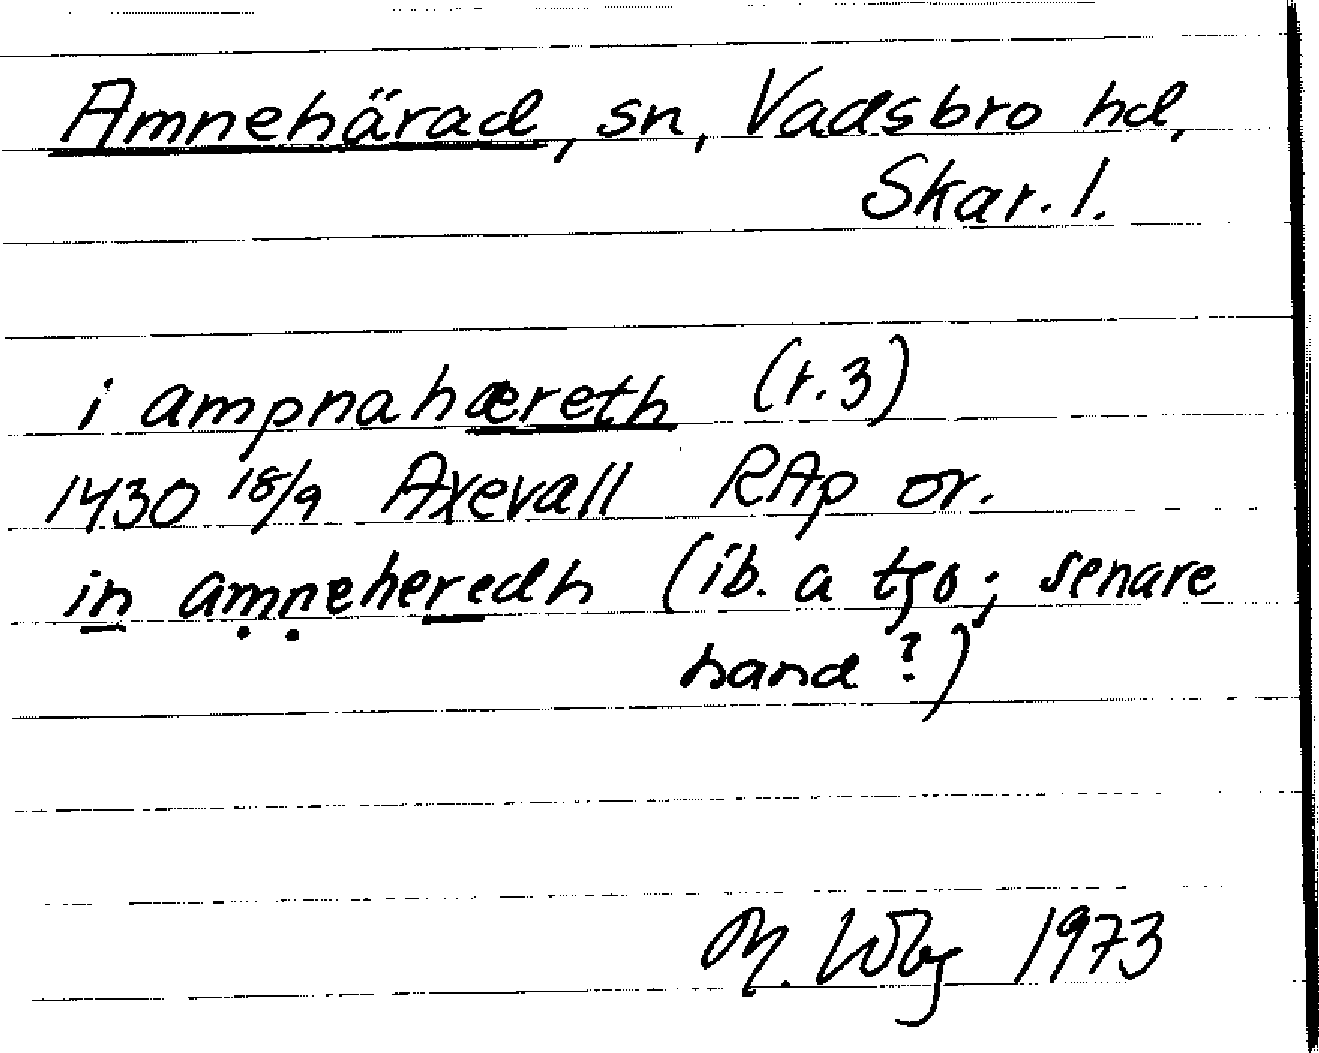 Amnehärad, sn, Vadsbro hd,
Skar. l.
i ampnahæreth (r.3)
1430 18/9 Axevall RAp or.
in amneheredh (ib. a tgo; senare
hand?)
M. Wbg 1973